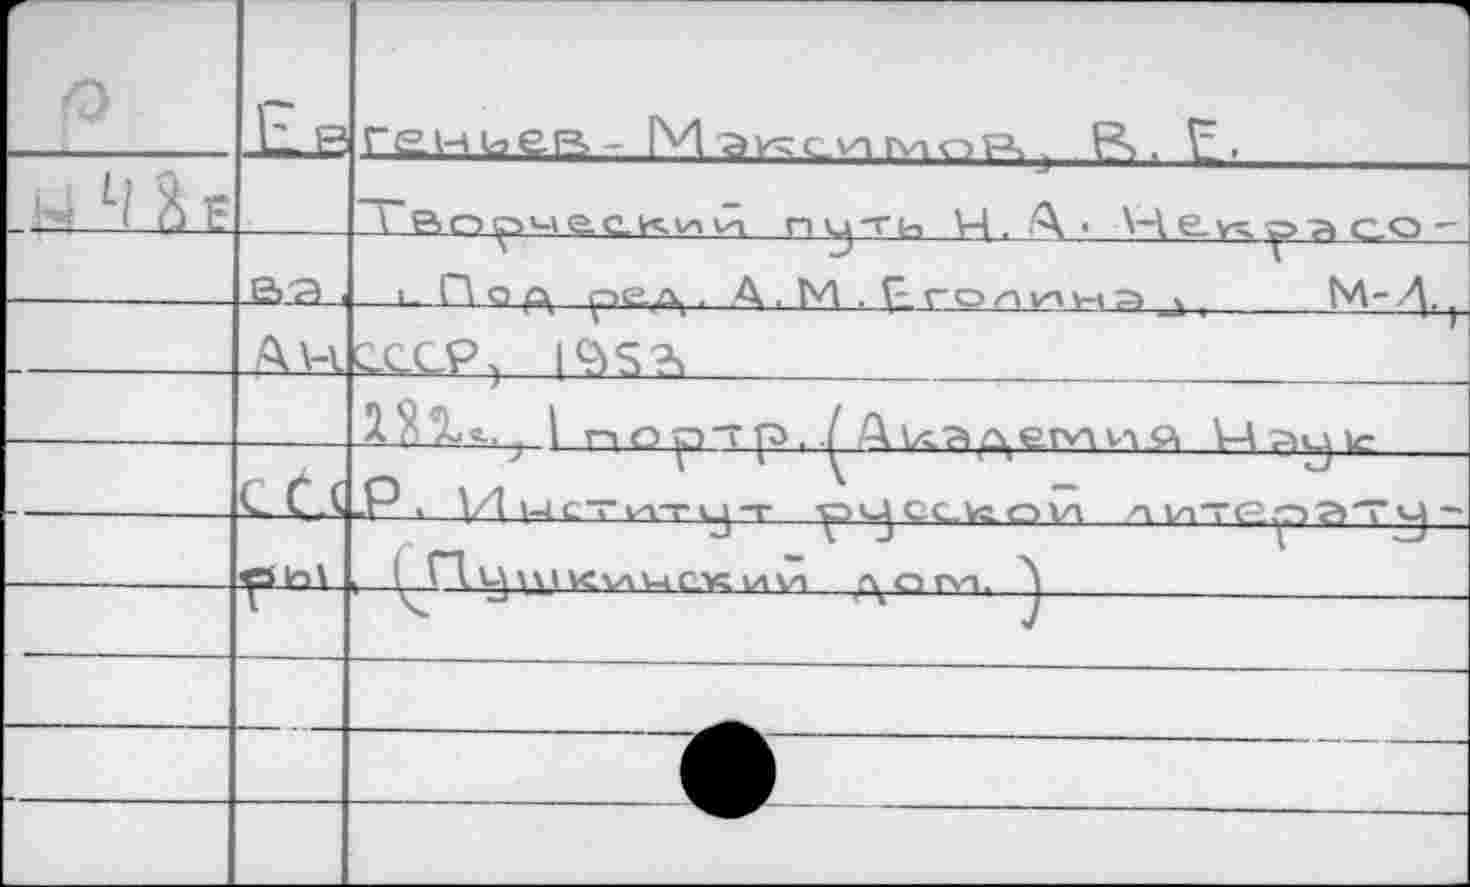 Р
Евгеньев-Максимов, В. Е.
Н48Е
Творческий путь Н. А. Некрасо-
ва. Под ред. А. М. Еголина. М-Л.,
АН СССР, 1953
282с., 1 портр. (Академия Наук
СССР. Институт русской литерату-
ры. (Пушкинский дом.)